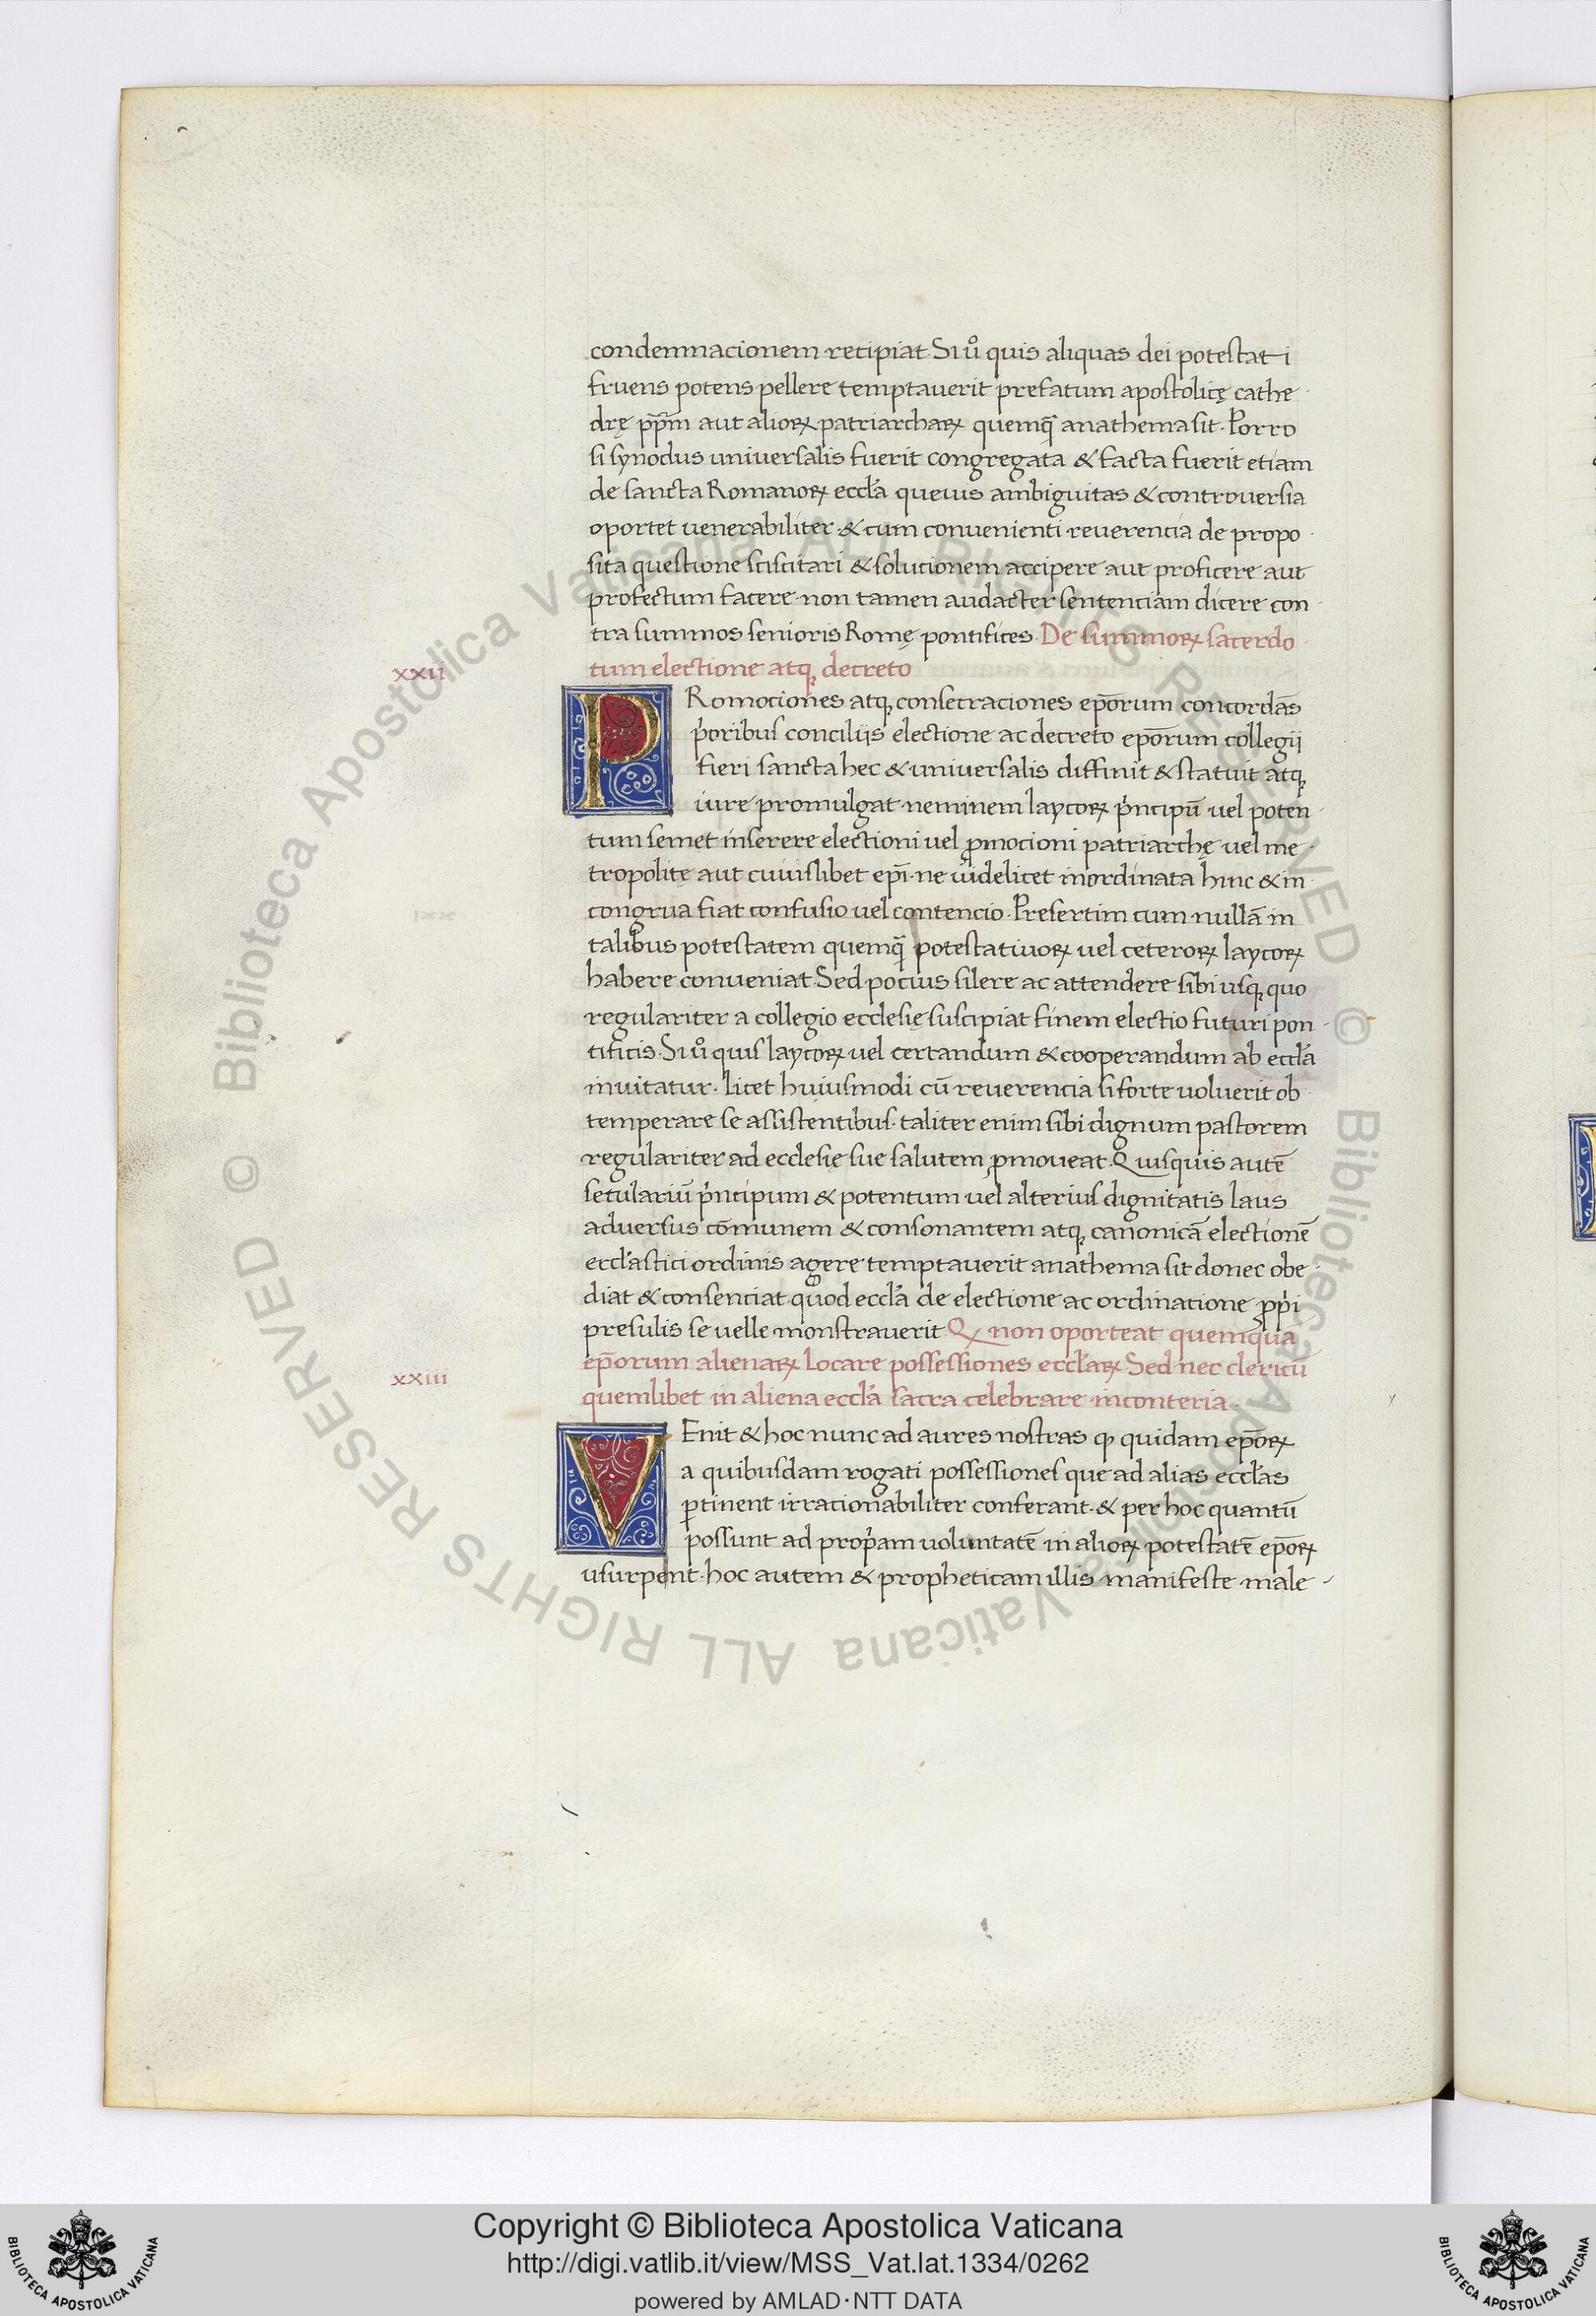 condemnacionem recipiat. Si uº quis aliquas dei potestati
fruens potens pellere temptauerit prefatum apostolicę cathe
drę pp̄m aut alioꝝ patriarchaꝝ quemq̄ anathema sit. Porro
si synodus uniuersalis fuerit congregata & facta fuerit etiam
de sancta Romanoꝝ eccła queuis ambiguitas & controuersia
oportet uenerabiliter & cum conuenienti reuerencia de propo
sita questione sciscitari & solucionem accipere aut proficere aut
profectum facere non tamen audacter sentenciam dicere con
tra summos senioris Romę pontifices. De summoꝝ sacerdo
xxii
tum electione atq; decreto
PRomociones atq; consecraciones ep̄orum concordās
p̍oribus conciliis electione ac decreto ep̄orum collegii
fieri sancta hec & uniuersalis diffinit & statuit atq;
iure promulgat neminem laycoꝝ p̍ncipū uel poten
tum semet inserere electioni uel ꝓmocioni patriarchę uel me
tropolitę aut cuiuslibet ep̄i. ne uidelicet inordinata hinc & in
congrua fiat confusio uel contencio. Presertim cum nullā in
talibus potestatem quemq̄ potestatiuoꝝ uel ceteroꝝ laycoꝝ
habere conueniat. Sed pocius silere ac attendere sibi usq; quo
regulariter a collegio ecclesię suscipiat finem electio futuri pon
tificis. Si uº quis laycoꝝ uel certandum & cooperandum ab eccła
inuitatur. licet huiusmodi cū reuerencia si forte uoluerit ob
temperare se assistentibus. taliter enim sibi dignum pastorem
regulariter ad ecclesię sue salutem ꝓmoueat. Quisquis autē
seculariū p̍ncipum & potentum uel alterius dignitatis laus
aduersus cōmunem & consonantem atq; canonicā electionē
eccłastici ordinis agere temptauerit anathema sit donec obe
diat & consenciat quod eccła de electione ac ordinatione ꝓp̍i
presulis se uelle monstrauerit Qꝝ non oporteat quemq̄ua
ep̄orum alienaꝝ locare possessiones eccłaꝝ Sed nec clericū
xxiii
quemlibet in aliena eccła sacra celebrare inconteria.
VEnit & hoc nunc ad aures nostras ꝙ quidam ep̄oꝝ
a quibusdam rogati possessiones que ad alias eccłas
ꝑtinent irracionabiliter conferant. & per hoc quantū
possunt ad prop̍am uoluntatē in alioꝝ potestatē ep̄oꝝ
usurpent. hoc autem & propheticam illis manifeste male
© Biblioteca Apostolica Vaticana ALL RIGHTS RESERVED © Biblioteca Apostolica Vaticana ALL RIGHTS RESERVED
Copyright © Biblioteca Apostolica Vaticana
http://digi.vatlib.it/view/MSS_Vat.lat.1334/0262
powered by AMLAD·NTT DATA
BIBLIOTECA APOSTOLICA VATICANA
BIBLIOTECA APOSTOLICA VATICANA